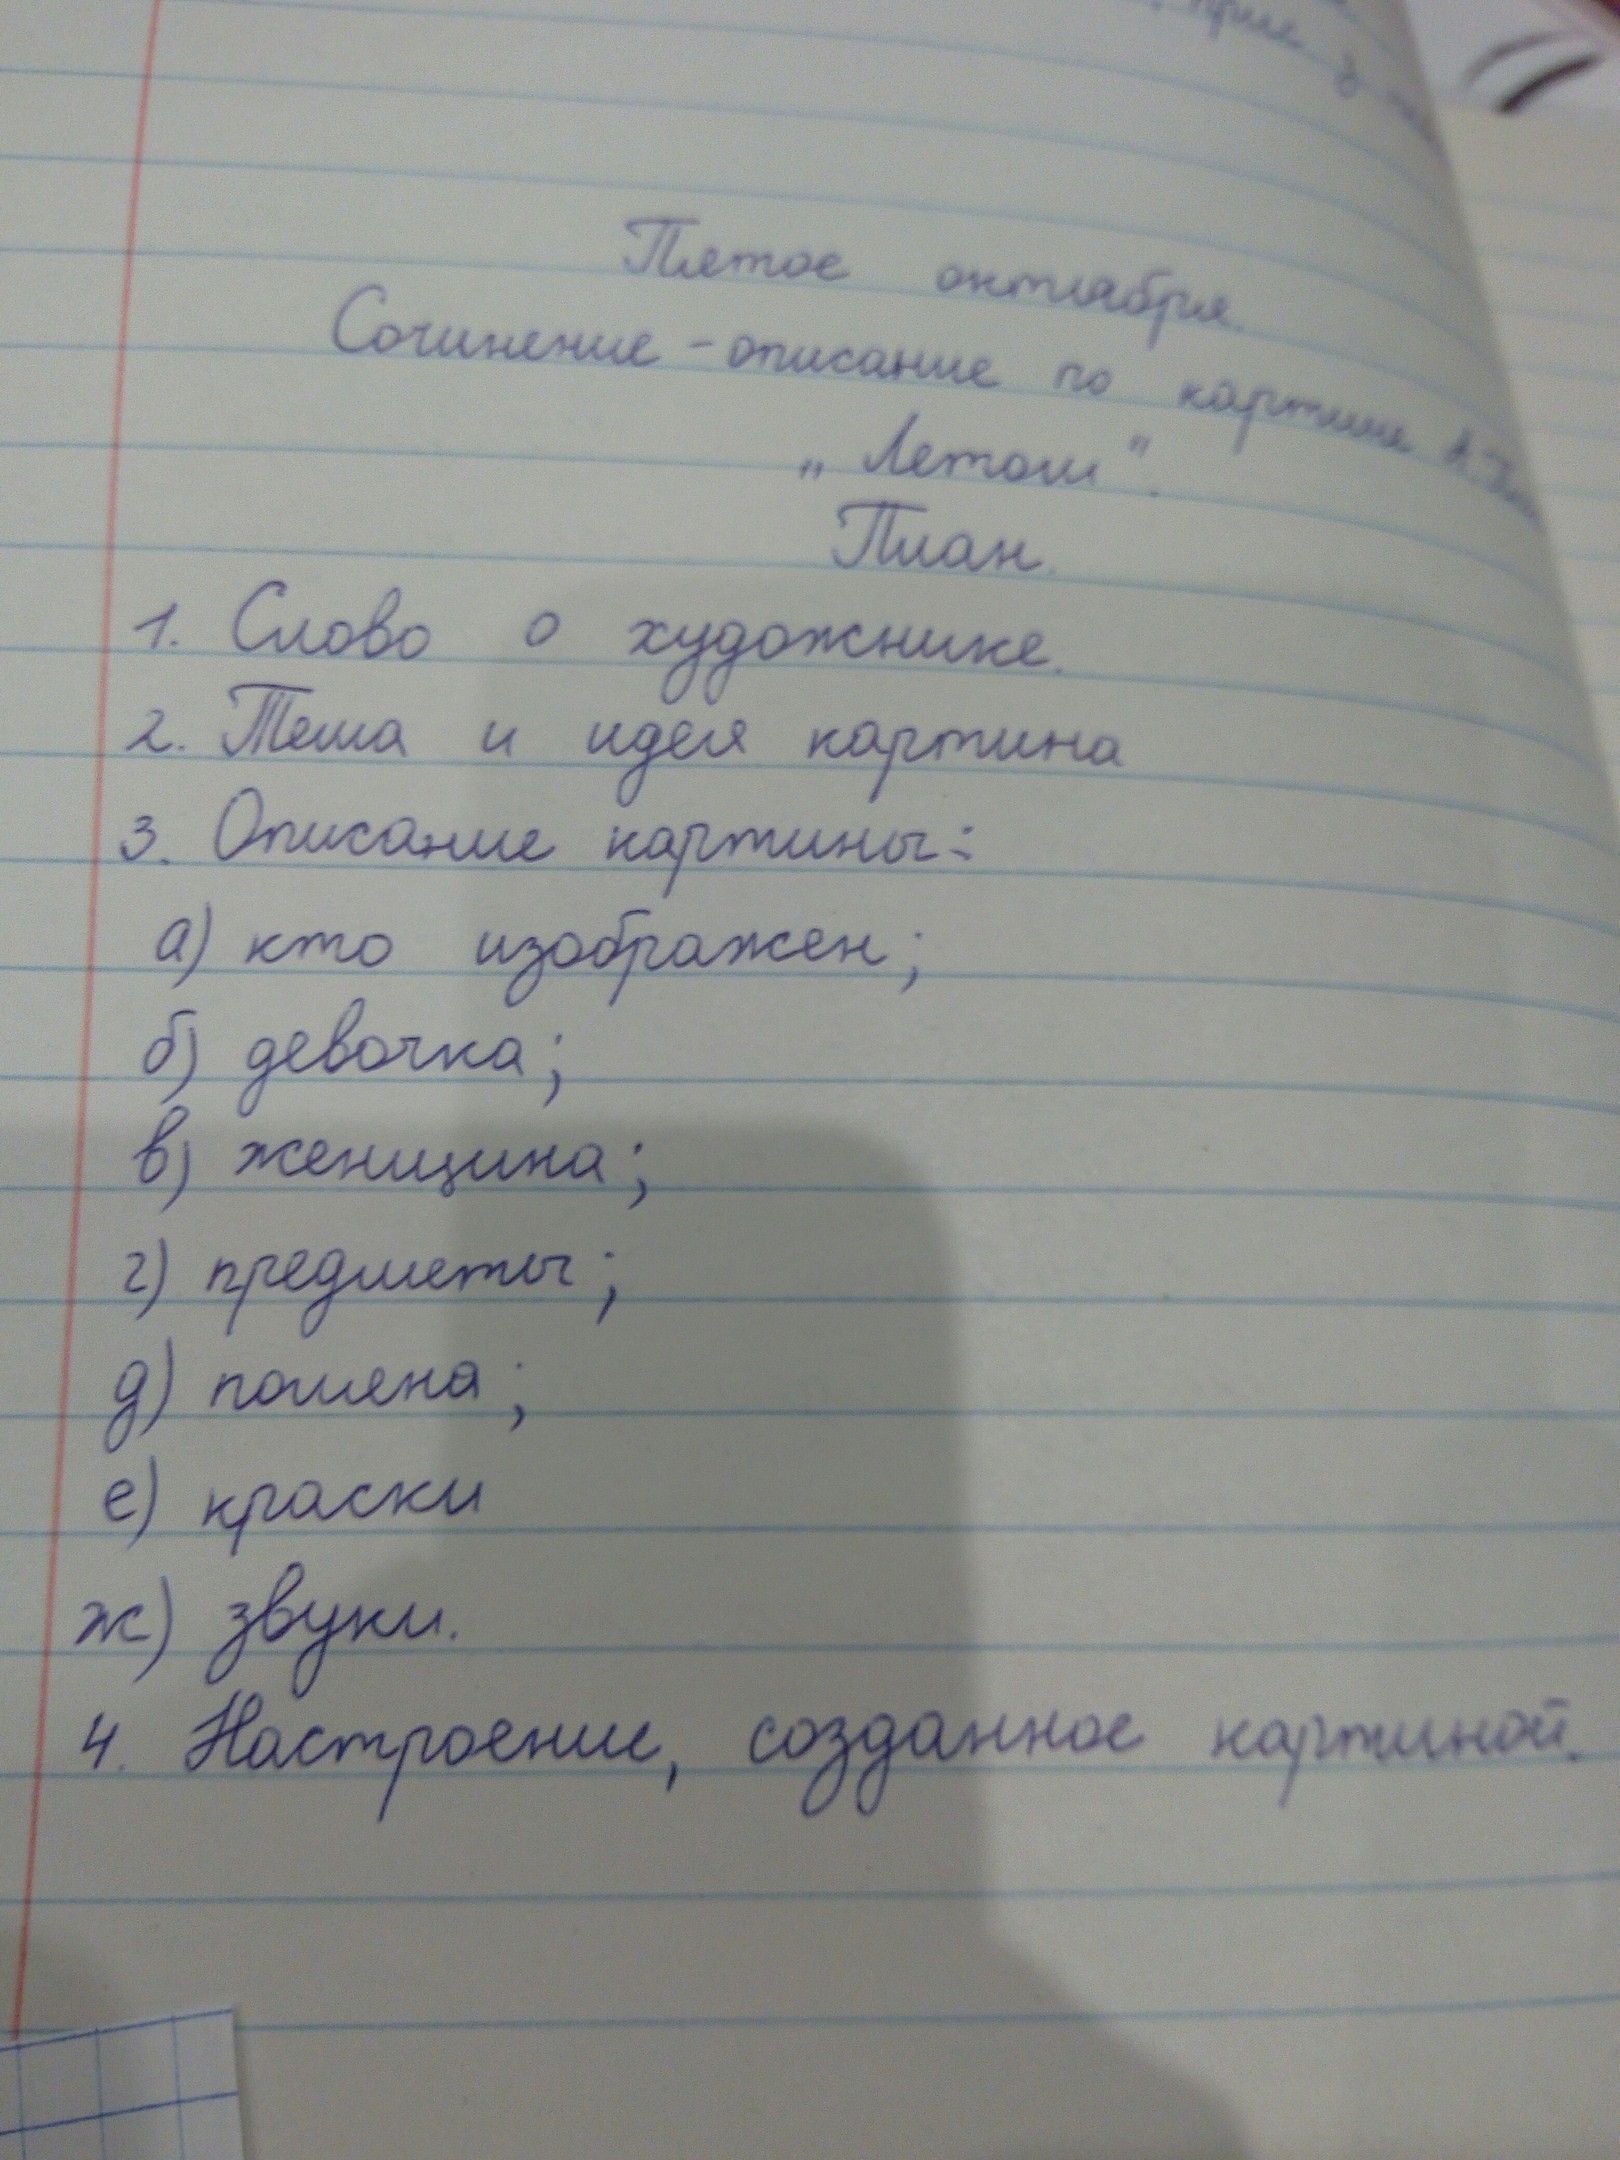 Пятое октября.
Сочинение-описание по картине А.
„Летом".
План.
1. Слово о художнике.
2. Тема и идея картина
3. Описание картины:
а) кто изображен;
б) девочка;
в) женщина;
г) предметы;
д) поляна;
е) краски
ж) звуки.
4. Настроение, созданное картиной.